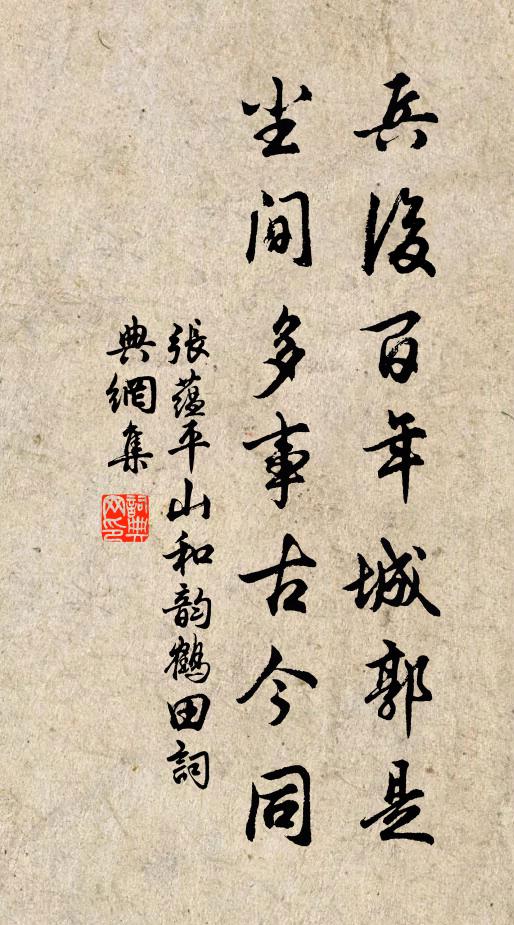 兵後百年城郭是
坐間多事古今同
張蘊平山和韵鶴田詞
典網集
詞典
网印